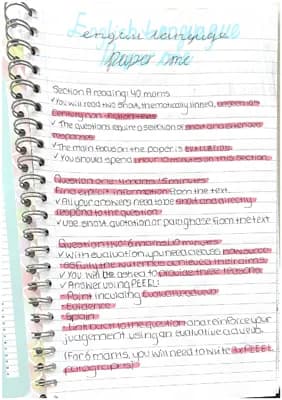 English Language
english language
paper one
Section A reading: 40 marks
✓ You will read two short, thematically linked,
✓ The questions require a selection of short and extended
responses
✓ The main focus on the paper is
✓ You should spend 1 hour 10 minutes on this section
Question one: 4 marks / 5 minutes
Find explicit information from the text
✓ All your answers need to be short and directly
respond to the question
✓ Use short quotation or paraphrase from the text
Question two: 6 marks / 10 minutes
✓ With evaluation, you need to discuss how success-
fully the writer has achieved their aims
✓ You will be asked to provide these reasons
✓ Answer using PEEL:
- Point including evaluative adverb
- Evidence
- Explain
- Link back to the question and reinforce your
judgement using an evaluative adverb.
(For 6 marks, you will need to write 3x PEEL
paragraphs)